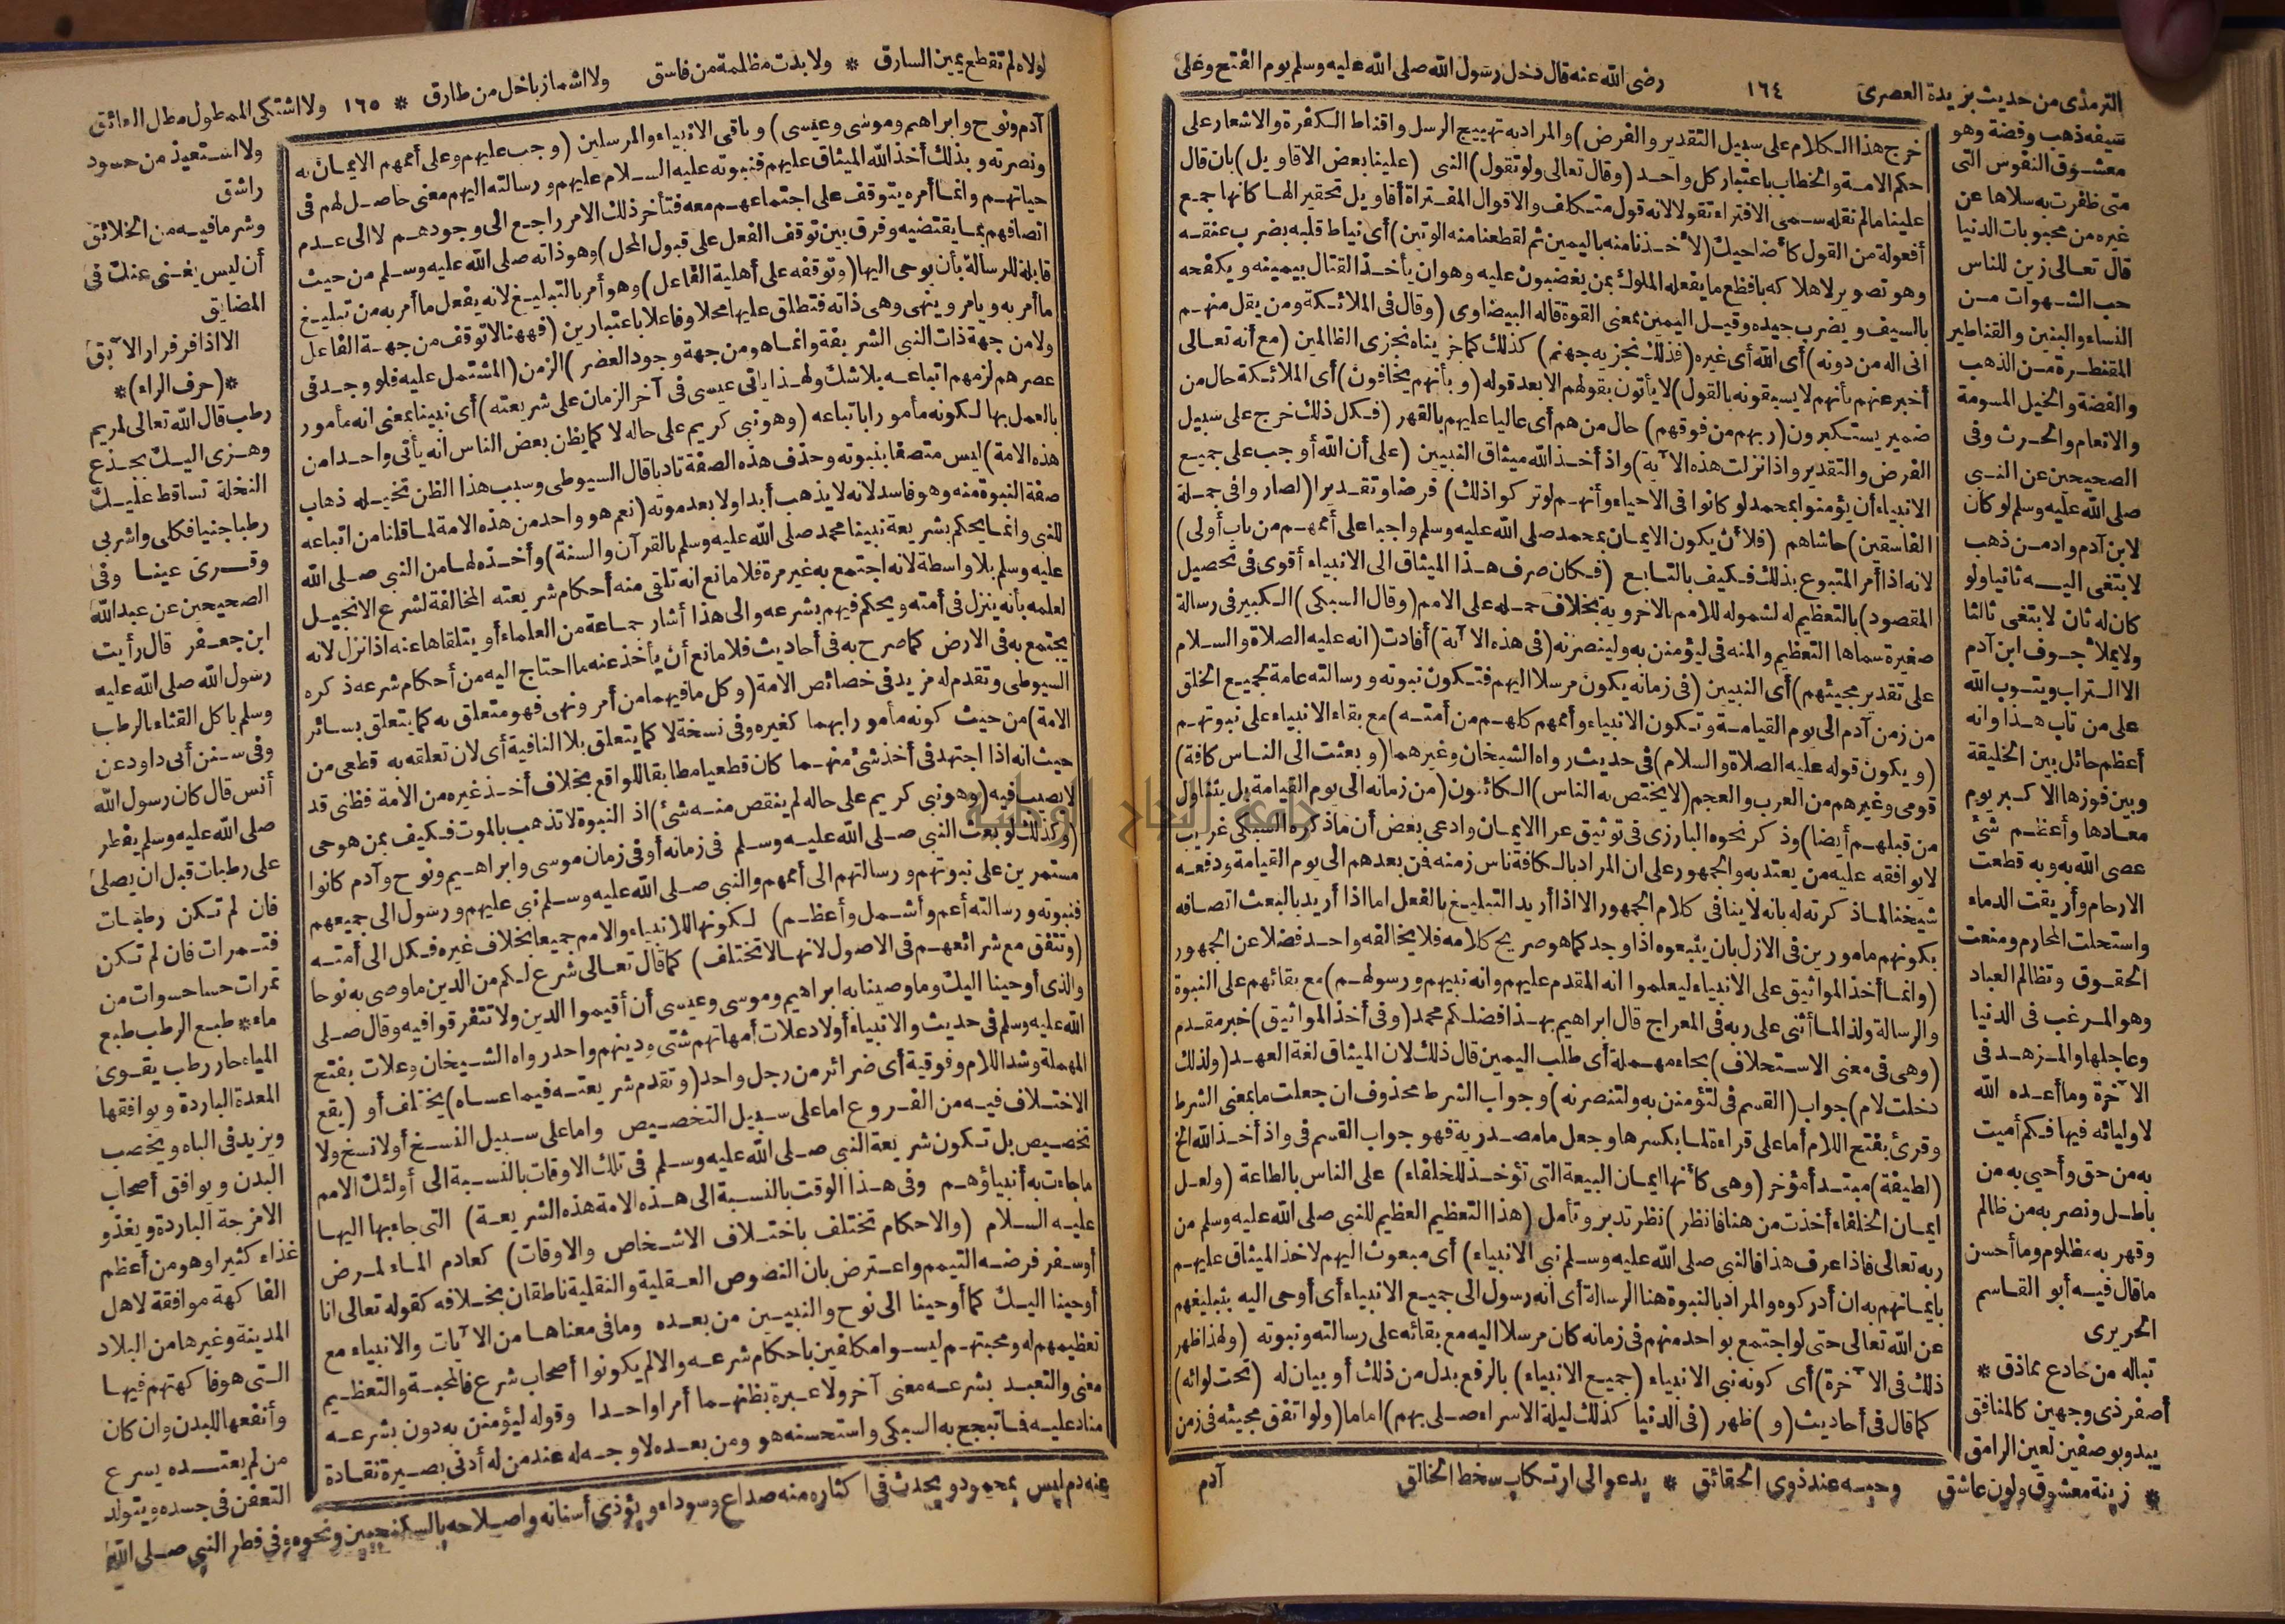 الترمذى من حديث بزيدة العصرى ١٦٤ رضى الله عنه قال دخل رسول الله صلى الله عليه وسلم يوم الفتح وعلى
سيفه ذهب وفضة وهو
معشوق النفوس التى
متى ظفرت به سلاها عن
غيره من محبوبات الدنيا
قال تعالى زين للناس
حب الشهوات من
النساء والبنين والقناطير
المقنطرة من الذهب
والفضة والخيل المسومة
والانعام والحرث وفى
الصحيحين عن النبى
صلى الله عليه وسلم لو كان
لابن آدم واد من ذهب
لابتغى اليه ثانيا ولو
كان له ثان لابتغى ثالثا
ولا يملأ جوف ابن آدم
الا التراب ويتوب الله
على من تاب هذا وانه
أعظم حائل بين الخليقة
وبين فوزها الاكبر يوم
معادها وأعظم شئ
عصى الله به وبه قطعت
الارحام وأريقت الدماء
واستحلت المحارم ومنعت
الحقوق وتظالم العباد
وهو المرغب فى الدنيا
وعاجلها والمزهد فى
الآخرة وما أعده الله
لاوليائه فيها فكم أميت
به من حق وأحيى به من
باطل ونصر به من ظالم
وقهر به مظلوم وما أحسن
ما قال فيه أبو القاسم
الحريرى
تباله من خادع مماذق *
أصفر ذى وجهين كالمنافق
يبدو بوصفين لعين الرامق
* زينة معشوق ولون عاشق وحبه عند ذوى الحقائق * يدعو الى ارتكاب سخط الخالق
خرج هذا الكلام على سبيل التقدير والفرض) والمراد به تهييج الرسل واقناط الكفرة والاشعار على
حكم الامة والخطاب باعتبار كل واحد (وقال تعالى ولو تقول) النبى (علينا بعض الاقاويل) بان قال
علينا ما لم نقله سمى الافتراء تقولا لانه قول متكلف والاقوال المفتراة أقاويل تحقيرا لها كانها جمع
أفعولة من القول كأضاحيك (لأخذنا منه باليمين ثم لقطعنا منه الوتين) أى نياط قلبه بضرب عنقه
وهو تصوير لاهلاكه بافظع ما يفعله الملوك بمن يغضبون عليه وهو ان يأخذ القتال بيمينه ويكفحه
بالسيف ويضرب جيده وقيل اليمين بمعنى القوة قاله البيضاوى (وقال فى الملائكة ومن يقل منهم
انى اله من دونه) أى الله أى غيره (فذلك نجزيه جهنم) كذلك كما جزيناه نجزى الظالمين (مع أنه تعالى
أخبر عنهم بأنهم لا يسبقونه بالقول) لا يأتون بقولهم الا بعد قوله (وبأنهم يخافون) أى الملائكة حال من
ضمير يستكبرون (ربهم من فوقهم) حال من هم أى عاليا عليهم بالقهر (فكل ذلك خرج على سبيل
الفرض والتقدير واذا نزلت هذه الآية) واذ أخذ الله ميثاق النبيين (على أن الله أوجب على جميع
الانبياء أن يؤمنوا بمحمد لو كانوا فى الاحياء وأنهم لو تركوا ذلك) فرضا وتقديرا (لصاروا فى جملة
الفاسقين) حاشاهم (فلأن يكون الايمان بمحمد صلى الله عليه وسلم واجبا على أممهم من باب أولى)
لانه اذا أمر المتبوع بذلك فكيف بالتابع (فكان صرف هذا الميثاق الى الانبياء أقوى فى تحصيل
المقصود) بالتعظيم له لشموله للامم بالاخروية بخلاف حمله على الامم (وقال السبكى) الكبير فى رسالة
صغيرة سماها التعظيم والمنه فى ليؤمنن به ولينصرنه (فى هذه الآية) أفادت (انه عليه الصلاة والسلام
على تقدير مجيئهم) أى النبيين (فى زمانه يكون مرسلا اليهم فتكون نبوته ورسالته عامة لجميع الخلق
من زمن آدم الى يوم القيامة وتكون الانبياء وأممهم كلهم من أمته) مع بقاء الانبياء على نبوتهم
(ويكون قوله عليه الصلاة والسلام) فى حديث رواه الشيخان وغيرهما (وبعثت الى الناس كافة)
قومى وغيرهم من العرب والعجم (لا يختص به الناس) الكائنون (من زمانه الى يوم القيامة بل يتناول
من قبلهم أيضا) وذكر نحوه البارزى فى توثيق عرا الايمان وادعى بعض أن ما ذكره السبكى غريب
لا يوافقه عليه من يعتد به والجمهور على ان المراد بالكافة ناس زمنه فمن بعدهم الى يوم القيامة ودفعه
شيخنا لما ذكرته له بانه لا ينافى كلام الجمهور الا اذا أريد التبليغ بالفعل اما اذا أريد بالبعث اتصافه
بكونهم مامورين فى الازل بان يتبعوه اذا وجد كما هو صريح كلامه فلا يخالفه واحد فضلا عن الجمهور
(وانما أخذ المواثيق على الانبياء ليعلموا انه المقدم عليهم وانه نبيهم ورسولهم) مع بقائهم على النبوة
والرسالة ولذا لما أثنى على ربه فى المعراج قال ابراهيم بهذا فضلكم محمد (وفى أخذ المواثيق) خبر مقدم
(وهى فى معنى الاستحلاف) بحاء مهملة أى طلب اليمين قال ذلك لان الميثاق لغة العهد (ولذلك
دخلت لام) جواب (القسم فى لتؤمنن به ولتنصرنه) وجواب الشرط محذوف ان جعلت ما بمعنى الشرط
وقرئ بفتح اللام أما على قراءة لما بكسرها وجعل ما مصدرية فهو جواب القسم فى واذ أخذ الله الخ
(لطيفة) مبتدأ مؤخر (وهى كأنها ايمان البيعة التى تؤخذ للخلفاء) على الناس بالطاعة (ولعل
ايمان الخلفاء أخذت من هنا فانظر) نظر تدبر وتأمل (هذا التعظيم العظيم للنبى صلى الله عليه وسلم من
ربه تعالى فاذا عرف هذا فالنبى صلى الله عليه وسلم نبى الانبياء) أى مبعوث اليهم لاخذ الميثاق عليهم
بايمانهم به ان أدركوه والمراد بالنبوة هنا الرسالة أى انه رسول الى جميع الانبياء أى أوحى اليه بتبليغهم
عن الله تعالى حتى لو اجتمع بواحد منهم فى زمانه كان مرسلا اليه مع بقائه على رسالته ونبوته (ولهذا ظهر
ذلك فى الآخرة) أى كونه نبى الانبياء (جميع الانبياء) بالرفع بدل من ذلك أو بيان له (تحت لوائه)
كما قال فى أحاديث (و) ظهر (فى الدنيا كذلك ليلة الاسراء صلى بهم) اماما (ولو اتفق مجيئه فى زمن
آدم
لولاه لم تقطع يمين السارق * ولا بدت مظلمة من فاسق ولا اشمأز باخل من طارق * ١٦٥ ولا اشتكى الممطول مطل العائق
ولا استعيذ من حسود
راشق
وشر ما فيه من الخلائق
أن ليس يغنى عنك فى
المضايق
الا اذا فر فرار الآبق
*(حرف الراء)*
رطب قال الله تعالى لمريم
وهزى اليك بجذع
النخلة تساقط عليك
رطبا جنيا فكلى واشربى
وقرى عينا وفى
الصحيحين عن عبد الله
ابن جعفر قال رأيت
رسول الله صلى الله عليه
وسلم ياكل القثاء بالرطب
وفى سنن أبى داود عن
أنس قال كان رسول الله
صلى الله عليه وسلم يفطر
على رطبات قبل ان يصلى
فان لم تكن رطبات
فتمرات فان لم تكن
تمرات حسا حسوات من
ماء * طبع الرطب طبع
المياه حار رطب يقوى
المعدة الباردة ويوافقها
ويزيد فى الباه ويخصب
البدن ويوافق أصحاب
الامزجة الباردة ويغذو
غذاء كثيرا وهو من أعظم
الفاكهة موافقة لاهل
المدينة وغيرها من البلاد
التى هو فاكهتهم فيها
وأنفعها للبدن وان كان
من لم يعتده يسرع
التعفن فى جسده ويتولد
عنه دم ليس بمحمود ويحدث فى اكثاره منه صداع وسوداء ويؤذى أسنانه واصلاحه بالسكنجبين ونحوه وفى فطر النبى صلى الله
آدم ونوح وابراهيم وموسى وعيسى) وباقى الانبياء والمرسلين (وجب عليهم وعلى أممهم الايمان به
ونصرته وبذلك أخذ الله الميثاق عليهم فنبوته عليه السلام عليهم ورسالته اليهم معنى حاصل لهم فى
حياتهم وانما أمره يتوقف على اجتماعهم معه فتأخر ذلك الامر راجع الى وجودهم لا الى عدم
اتصافهم بما يقتضيه وفرق بين توقف الفعل على قبول المحل) وهو ذاته صلى الله عليه وسلم من حيث
قابلة للرسالة بأن يوحى اليها (وتوقفه على أهلية الفاعل) وهو أمر بالتبليغ لانه يفعل ما أمر به من تبليغ
ما أمر به ويامر وينهى وهى ذاته فتطلق عليها محلا وفاعلا باعتبارين (فههنا لا توقف من جهة الفاعل
ولا من جهة ذات النبى الشريفة وانما هو من جهة وجود العصر) الزمن (المشتمل عليه فلو وجد فى
عصرهم لزمهم اتباعه بلا شك ولهذا ياتى عيسى فى آخر الزمان على شريعته) أى نبينا بمعنى انه مأمور
بالعمل بها لكونه مأمورا باتباعه (وهو نبى كريم على حاله لا كما يظن بعض الناس انه يأتى واحدا من
هذه الامة) ليس متصفا بنبوته وحذف هذه الصفة تادبا قال السيوطى وسبب هذا الظن تخيله ذهاب
صفة النبوة منه وهو فاسد لانه لا يذهب أبدا ولا بعد موته (نعم هو واحد من هذه الامة لما قلنا من اتباعه
للنبى وانما يحكم بشريعة نبينا محمد صلى الله عليه وسلم بالقرآن والسنة) وأخذه لها من النبى صلى الله
عليه وسلم بلا واسطة لانه اجتمع به غير مرة فلا مانع انه تلقى منه أحكام شريعته المخالفة لشرع الانجيل
لعلمه بأنه ينزل فى أمته ويحكم فيهم بشرعه والى هذا أشار جماعة من العلماء أو يتلقاها عنه اذا نزل لانه
يجتمع به فى الارض كما صرح به فى أحاديث فلا مانع أن يأخذ عنه ما احتاج اليه من أحكام شرعه ذكره
السيوطى وتقدم له مزيد فى خصائص الامة (وكل ما فيهما من أمر ونهى فهو متعلق به كما يتعلق بسائر
الامة) من حيث كونه مأمورا بهما كغيره وفى نسخة لا كما يتعلق بلا النافية أى لان تعلقه به قطعى من
حيث انه اذا اجتهد فى أخذ شئ منهما كان قطعيا مطابقا للواقع بخلاف أخذ غيره من الامة فظنى قد
لا يصيب فيه (وهو نبى كريم على حاله لم ينقص منه شئ) اذ النبوة لا تذهب بالموت فكيف بمن هو حى
(وكذلك لو بعث النبى صلى الله عليه وسلم فى زمانه أو فى زمان موسى وابراهيم ونوح وآدم كانوا
مستمرين على نبوتهم ورسالتهم الى أممهم والنبى صلى الله عليه وسلم نبى عليهم ورسول الى جميعهم
فنبوته ورسالته أعم وأشمل وأعظم) لكونها للانبياء والامم جميعا بخلاف غيره فكل الى أمته
(وتتفق مع شرائعهم فى الاصول لانها لا تختلف) كما قال تعالى شرع لكم من الدين ما وصى به نوحا
والذى أوحينا اليك وما وصينا به ابراهيم وموسى وعيسى أن أقيموا الدين ولا تتفرقوا فيه وقال صلى
الله عليه وسلم فى حديث والانبياء أولاد علات أمهاتهم شتى ودينهم واحد رواه الشيخان وعلات بفتح
المهملة وشد اللام وفوقية أى ضرائر من رجل واحد (وتقدم شريعته فيما عساه) يختلف أو (يقع
الاختلاف فيه من الفروع اما على سبيل التخصيص واما على سبيل النسخ أو لا نسخ ولا
تخصيص بل تكون شريعة النبى صلى الله عليه وسلم فى تلك الاوقات بالنسبة الى أولئك الامم
ما جاءت به أنبياؤهم وفى هذا الوقت بالنسبة الى هذه الامة هذه الشريعة) التى جاء بها اليها
عليه السلام (والاحكام تختلف باختلاف الاشخاص والاوقات) كعادم الماء لمرض
أو سفر فرضه التيمم واعترض بان النصوص العقلية والنقلية ناطقان بخلافه كقوله تعالى انا
أوحينا اليك كما أوحينا الى نوح والنبيين من بعده وما فى معناها من الآيات والانبياء مع
تعظيمهم له ومحبتهم ليسوا مكلفين باحكام شرعه والا لم يكونوا أصحاب شرع فالمحبة والتعظيم
معنى والتعبد بشرعه معنى آخر ولا عبرة بظنهما أمرا واحدا وقوله ليؤمنن به دون بشرعه
مناد عليه فما تبجح به السبكى واستحسنه هو ومن بعده لا وجه له عند من له أدنى بصيرة نقادة
جامعة النجاح الوطنية